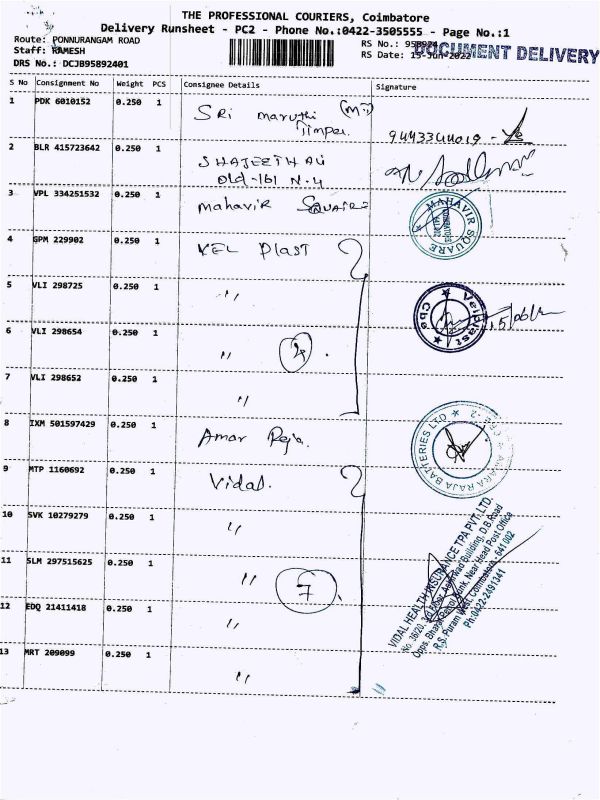 THE PROFESSIONAL COURIERS, Coimbatore
Delivery Runsheet - PC2 - Phone No.:0422-3505555 - Page No.:1
Route: PONNURANGAM ROAD
Staff: RAMESH
DRS No.: DCJB95892401
RS No.:
RS Date: 15-Jun-2022
DOCUMENT DELIVERY
S No Consignment No Weight PCS Consignee Details Signature
1 PDK 6010152 0.250 1 SRi maruthi (M-i)
Timper 9443344019
2 BLR 415723642 0.250 1 SHAJEETH ALi
Old-161 N-4
3 VPL 334251532 0.250 1 mahavir SQUAIRE
MAHAVIR SQUARE
4 GPM 229902 0.250 1 VEL Plast
5 VLI 298725 0.250 1 "
Velplast Cbe
15/06/22
6 VLI 298654 0.250 1 " 4
7 VLI 298652 0.250 1 "
8 IXM 501597429 0.250 1 Amar Raja.
AMARA RAJA BATTERIES LTD CBE-2
9 MTP 1160692 0.250 1 Vidal.
10 SVK 10279279 0.250 1 "
11 SLM 297515625 0.250 1 " 7
12 EDQ 21411418 0.250 1 "
13 MRT 209099 0.250 1 "
VIDAL HEALTH INSURANCE TPA PVT. LTD.
No. 36/20, 3rd Floor, Building, D.B.Road
Opps. Bharat Bank, Near Head Post Office
R.S. Puram West, Coimbatore - 641002
Ph:0422-2491341